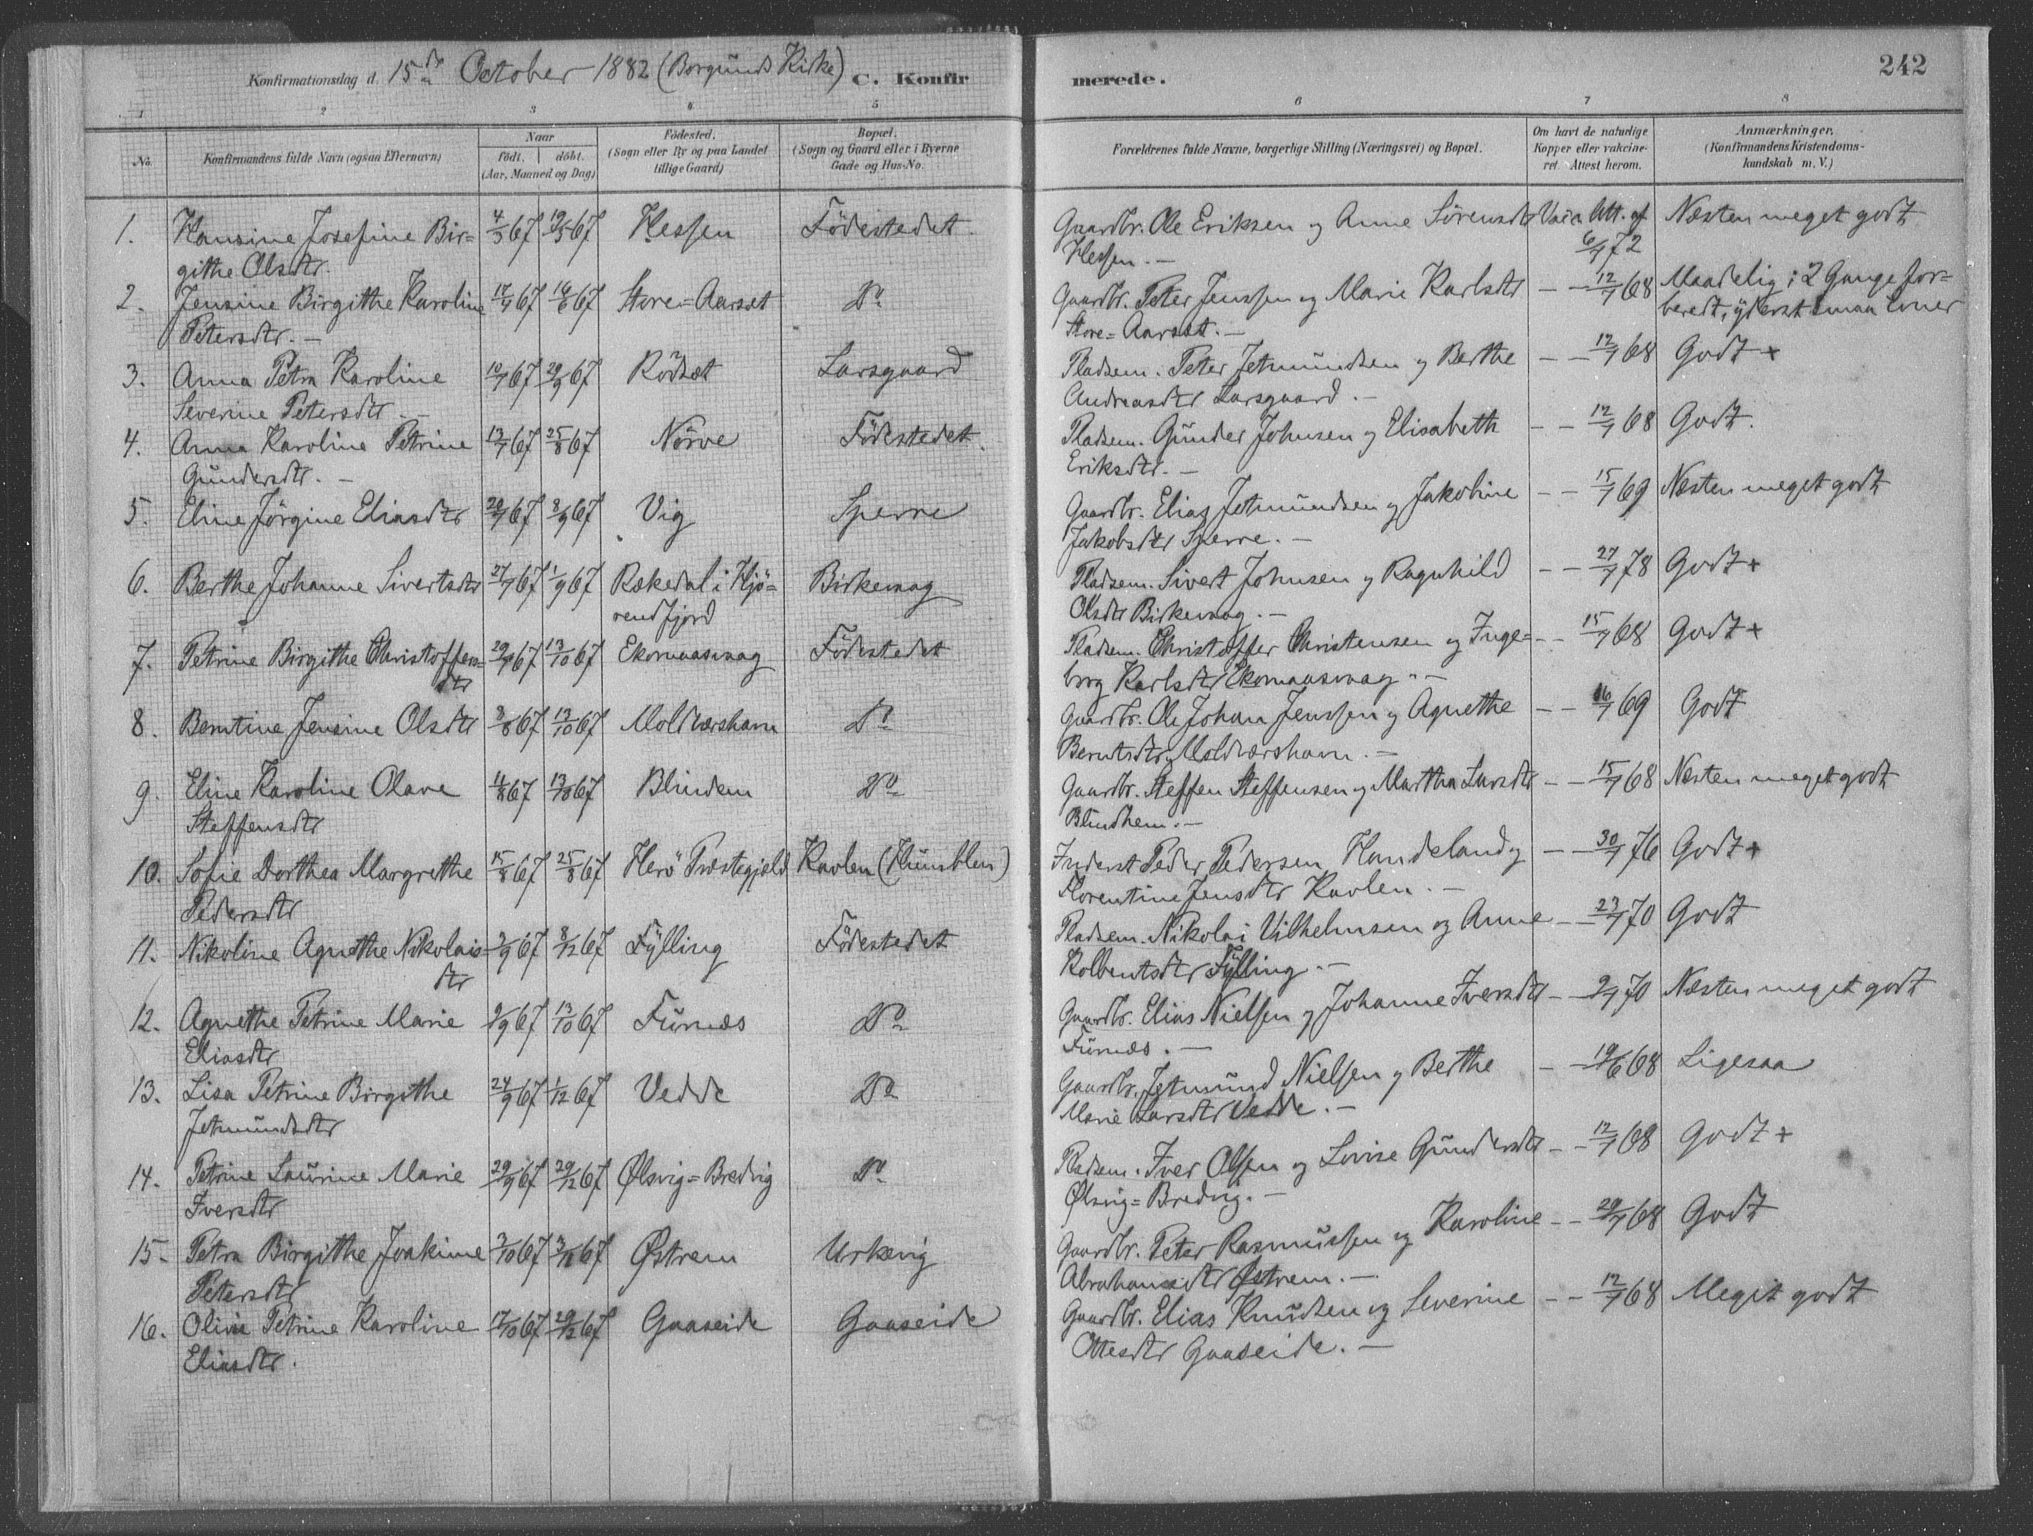 Konfirmationsdag d. 15de October 1882 (Borgunds Kirke) C. Konfirmerede. 242
1 2 3 4 5 6 7 8
No. Konfirmandens fulde Navn (ogsaa Efternavn) Naar født, døbt. (Aar, Maaned og Dag) Fødested. (Sogn eller By og paa Landet tillige Gaard) Bopæl. (Sogn og Gaard eller i Byerne Gade og Hus-No. Forældrenes fulde Navne, borgerlige Stilling (Næringsvei) og Bopæl. Om havt de naturlige Kopper eller vakcineret. Attest herom. Anmærkninger. (Konfirmandens Kristendomskundskab m. V.)
1. Hansine Josefine Bir= 4/3 67 19/5 67 Hessen Födestedet. Gaardbr. Ole Eriksen og Anne Sörensdtr Vacc. Att. af Næsten meget godt
githe Olsdtr. Hessen. — 6/7 72
2. Jensine Birgithe Karoline 67 67 Store=Aarset Do Gaardbr. Peter Jenssen og Marie Karlsdtr — — 12/7 68 Maadelig; 2 Gange for=
Petersdtr. — Store=Aarset. — beredt, yderst smaa Evner
3. Anna Petra Karoline 10/7 67 29/9 67 Rödset Larsgaard Pladsem. Peter Jetmundsen og Berthe — — 12/7 68 Godt +
Severine Petersdtr. — Andreasdtr Larsgaard. —
4. Anna Karoline Petrine 13/7 67 25/8 67 Nörve Födestedet. Pladsem. Gunder Johnsen og Elisabeth — — 12/7 68 Godt.
Gundersdtr. — Eriksdtr. —
5. Eline Jörgine Eliasdtr 20/7 67 8/9 67 Vig Sperre Gaardbr. Elias Jetmundsen og Jakobine — — 15/7 69 Næsten meget godt
Jakobsdtr Sperre. —
6. Berthe Johanne Sivertsdtr 27/7 67 1/9 67 Rækedal i Hjö= Birkevaag Pladsem. Sivert Johnsen og Ragnhild — — 27/7 78 Godt +
rendfjord Olsdtr Birkevaag. —
7. Petrine Birgithe Christoffers= 29/7 67 13/10 67 Ekornaasvaag Födestedet Pladsem. Christoffer Christensen og Inge= — — 15/7 68 Godt +
dtr borg Karlsdtr Ekornaasvaag. —
8. Berntine Jensine Olsdtr 3/8 67 13/10 67 Moldværshavn Do Gaardbr. Ole Johan Jenssen og Agnethe — — 16/7 69 Godt
Berntsdtr Moldværshavn. —
9. Eline Karoline Olave 4/8 67 13/10 67 Blindem Do Gaardbr. Steffen Steffensen og Martha Larsdtr — — 15/7 68 Næsten meget godt
Steffensdtr Blindhem. —
10. Sofie Dorthea Margrethe 15/8 67 25/8 67 Herö Præstegjeld Kavlen (Humblen) Inderst Peder Pedersen Handeland og — — 30/7 76 Godt +
Pedersdtr Florentine Jensdtr Kavlen. —
11. Nikoline Agnethe Nikolais= 2/9 67 8/12 67 Fylling Födestedet Pladsem. Nikolai Vilhelmsen og Anne — — 23/7 70 Godt
dtr Kolbentsdtr Fylling. —
12. Agnethe Petrine Marie 9/9 67 13/10 67 Furnæs Do Gaardbr. Elias Nielsen og Johanne Iversdtr — — 9/7 70 Næsten meget godt
Eliasdtr Furnæs. —
13. Lisa Petrine Birgithe 24/9 67 1/12 67 Vedde Do Gaardbr. Jetmund Nielsen og Berthe — — 19/6 68 Ligesaa
Jetmundsdtr Marie Larsdtr Vedde. —
14. Petrine Laurine Marie 29/9 67 29/12 67 Ølsvig=Bredvig Do Pladsem. Iver Olsen og Lovise Gundersdtr — — 12/7 68 Godt +
Iversdtr Ølsvig=Bredvig. —
15. Petra Birgithe Joakime 3/10 67 67 Østrem Urkevig Gaardbr. Peter Rasmussen og Karoline — — 20/7 68 Godt
Petersdtr Abrahamsdtr Østrem. —
16. Olive Petrine Karoline 17/10 67 29/12 67 Gaaseide Gaaseide Gaardbr. Elias Knudsen og Severine — — 12/7 68 Meget godt
Eliasdtr. Ottesdtr Gaaseide. —